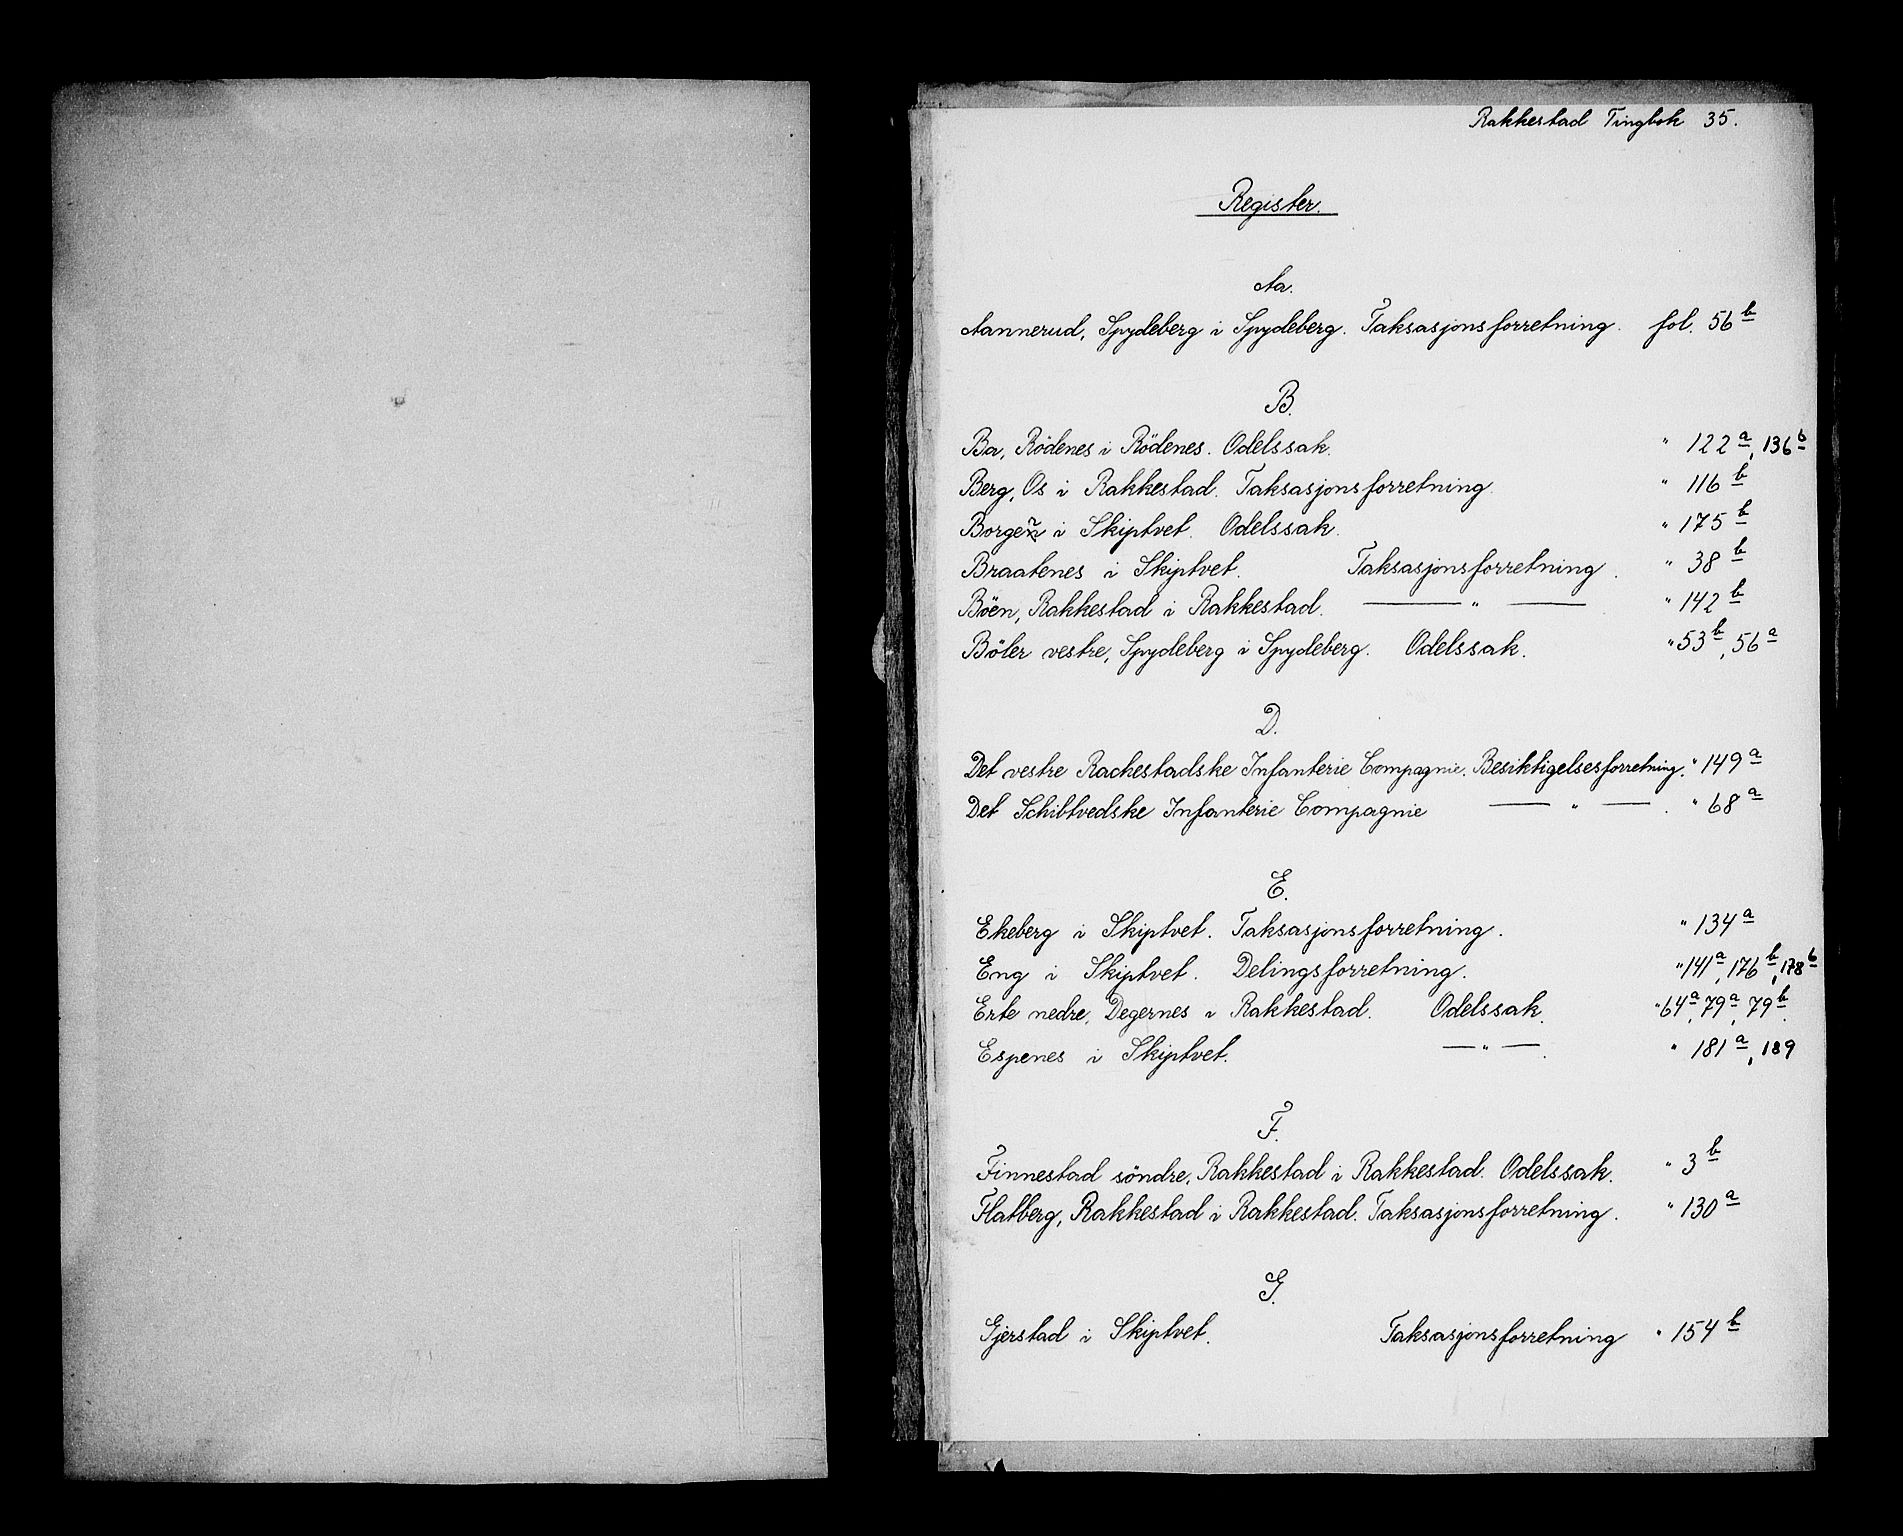 Rakkestad Tingbok 35.
Register.
Aa.
Aannerud, Spydeberg i Spydeberg. Taksasjonsforretning. fol. 56 b
B.
Ba, Rödenes i Rödenes. Odelssak. " 122 a, 136 b
Berg, Os i Rakkestad. Taksasjonsforretning. " 116 b
Borgen i Skiptvet. Odelssak. " 175 b
Braatenes i Skiptvet. Taksasjonsforretning. " 38 b
Böen, Rakkestad i Rakkestad. — " — " 142 b
Böler vestre, Spydeberg i Spydeberg. Odelssak. " 53 b, 56 a
D.
Det vestre Rackestadske Infanterie Compagnie. Besiktigelsesforretning. " 149 a
Det Schibtvedske Infanterie Compagnie — " — . " 68 a
E.
Ekeberg i Skiptvet. Taksasjonsforretning. " 134 a
Eng i Skiptvet. Delingsforretning. " 141 a, 176 b, 178 b
Erte nedre, Degernes i Rakkestad. Odelssak. " 64 a, 79 a, 79 b.
Espenes i Skiptvet. — " — . " 181 a, 189
F.
Finnestad söndre, Rakkestad i Rakkestad. Odelssak. " 3 b
Flatberg, Rakkestad i Rakkestad. Taksasjonsforretning. " 130 a
G.
Gjerstad i Skiptvet. Taksasjonsforretning " 154 b